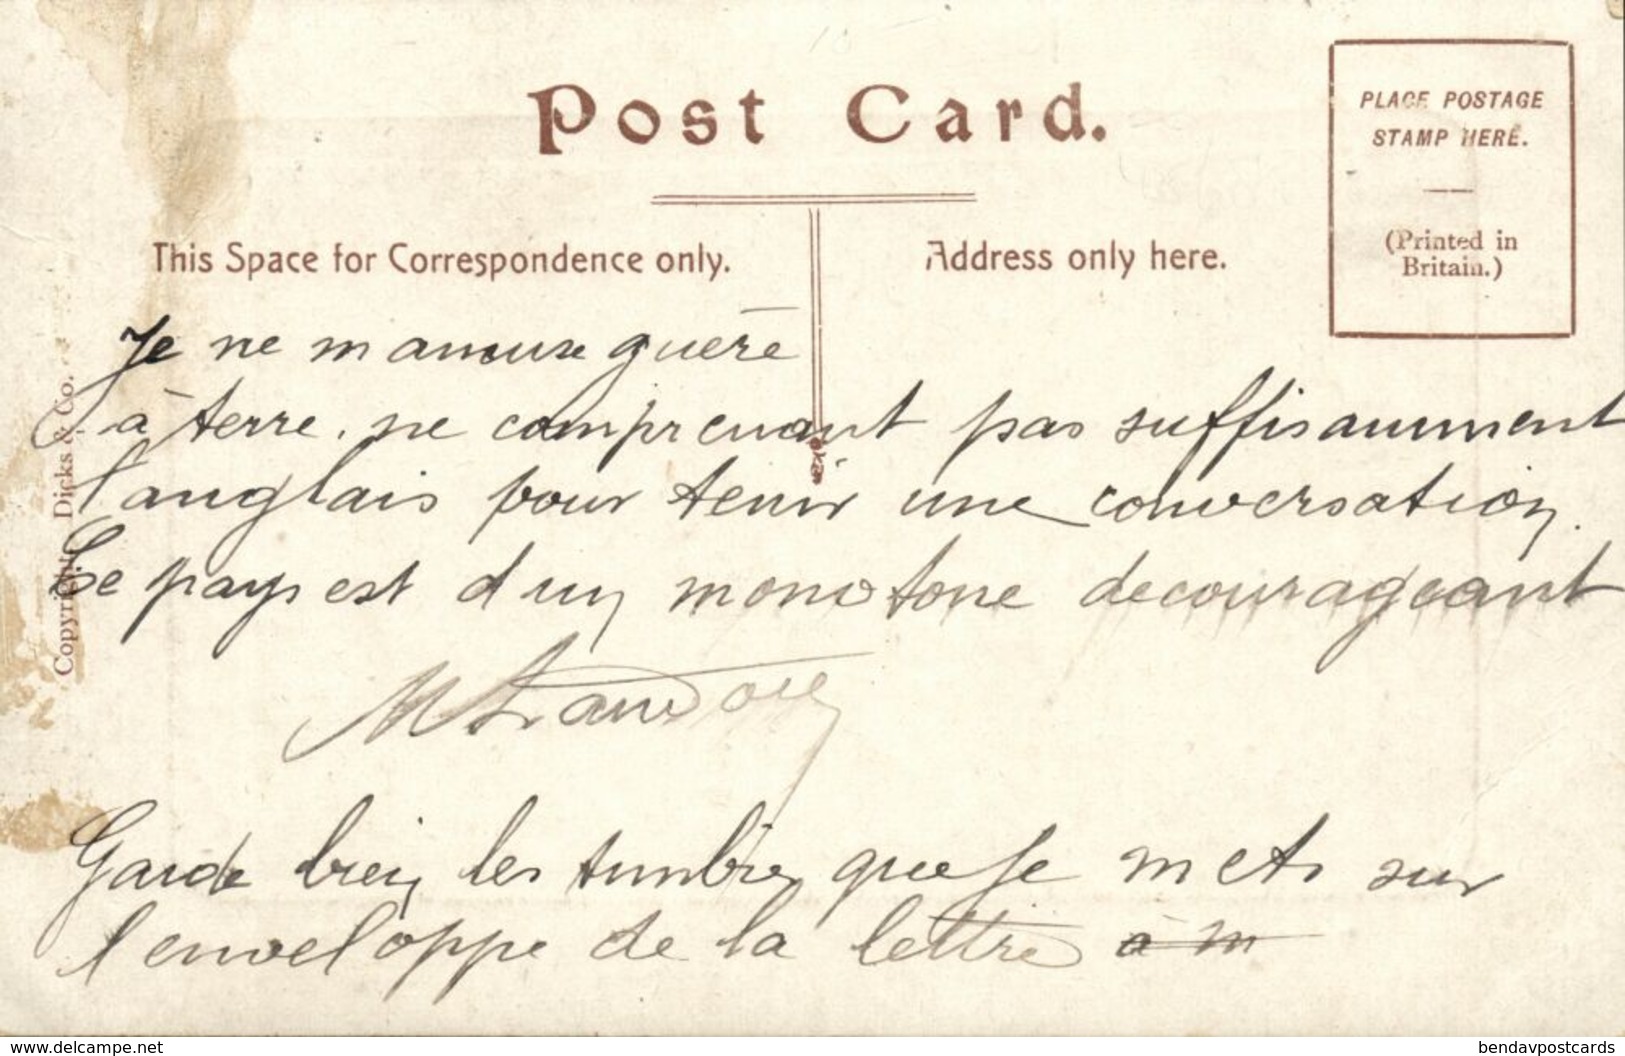 Post Card.
PLACE POSTAGE
STAMP HERE.
(Printed in
Britain.)
This Space for Correspondence only.
Address only here.
Copyright. Dicks & Co.
Je ne m amuse guère
à terre. ne comprenant pas suffisamment
l'anglais pour tenir une conversation.
Le pays est d un monotone decourageant
M
Garde bien les timbres que Je mets sur
l enveloppe de la lettre à m
www.delcampe.net
bendavpostcards